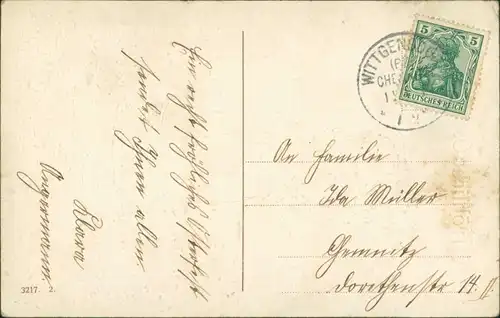 Ein recht fröhliches Osterfest
sendet Ihnen allen
Klara
Angermann
3217. 2.
WITTGENSDORF
CHE
5 5
DEUTSCHES REICH
An Familie
Ida Müller
Chemnitz
Dorotheenstr 14. II.